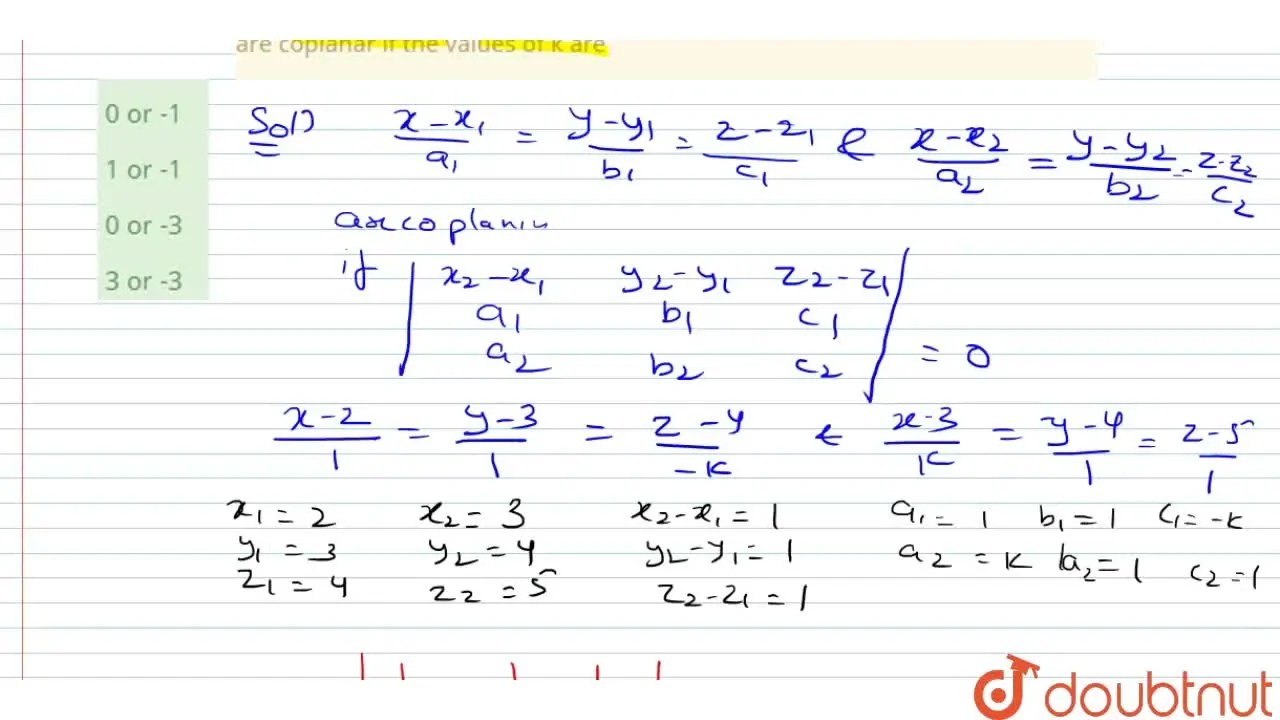 are coplanar if the values of k are
0 or -1
1 or -1
0 or -3
3 or -3
Solⁿ x-x₁/a₁ = y-y₁/b₁ = z-z₁/c₁ & x-x₂/a₂ = y-y₂/b₂ = z-z₂/c₂
are coplanar
if | x₂-x₁ y₂-y₁ z₂-z₁ |
a₁ b₁ c₁
a₂ b₂ c₂ = 0
x-2/1 = y-3/1 = z-4/-k & x-3/k = y-4/1 = z-5/1
x₁ = 2 x₂ = 3 x₂-x₁ = 1 a₁ = 1 b₁ = 1 c₁ = -k
y₁ = 3 y₂ = 4 y₂-y₁ = 1 a₂ = k b₂ = 1 c₂ = 1
z₁ = 4 z₂ = 5 z₂-z₁ = 1
doubtnut